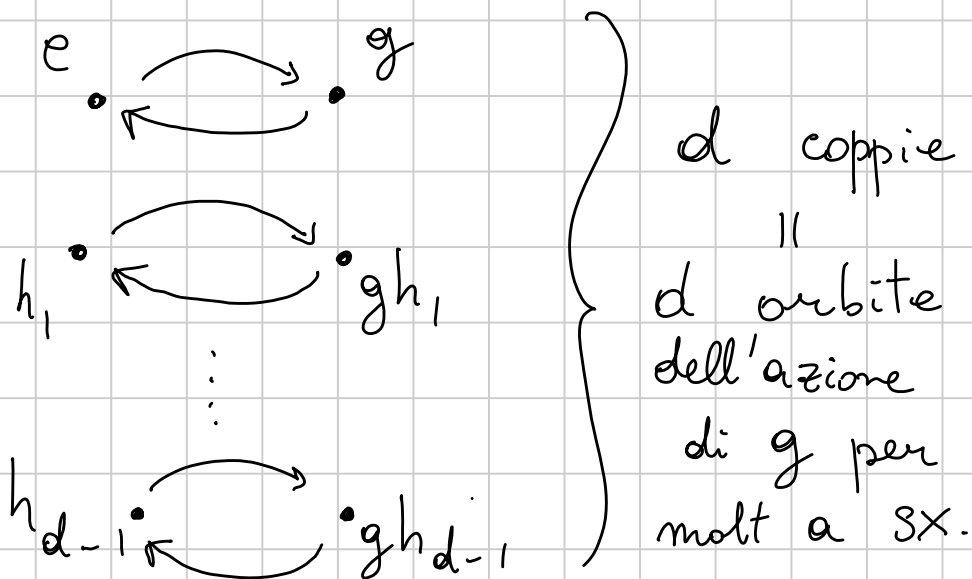 e g
h₁ gh₁
⋮
h_{d-1} gh_{d-1}
d coppie
||
d orbite
dell'azione
di g per
molt a sx.